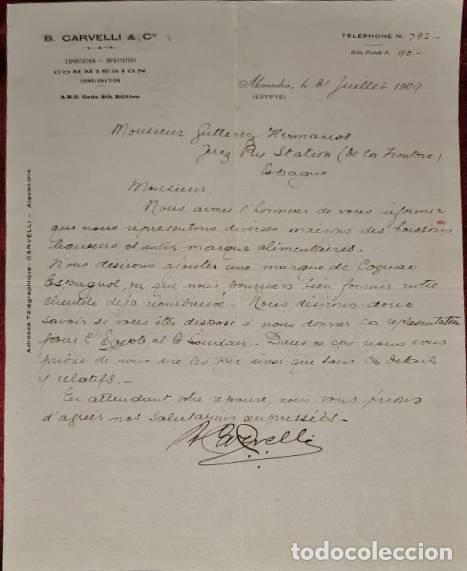 B. CARVELLI & Cº
EXPORTATION — IMPORTATION
COMMISSION
CONSIGNATION
A.B.C. Code 5th Edition
TÉLÉPHONE N. 792 -
Boîte Postale N. 90. -
Alexandrie, le Juillet 1909
(EGYPTE)
Monsieur Gutierrez Hermanos
Jerez Ry Station (De la Frontera)
Espagne
Monsieur.
Nous avons l'honneur de vous informer
que nous représentons diverses maisons des boissons
liqueurs et autres marque alimentaires.-
Nous désirons ajouter une marque de Cognac
Espagnol, que nous pourrions bien fournir notre
clientèle déjà nombreuse. - Nous désirons donc
savoir si vous êtes disposé à nous donner la représentation
pour l'Egypte et le Soudan. - Dans ce cas nous vous
prions de nous les prix ainsi que tous les details
y relatifs. -
En attendant votre reponse, nous vous prions
d'agréer nos salutations empressées. -
B Carvelli
Adresse Télégraphique: CARVELLI — Alexandrie
todocoleccion.net